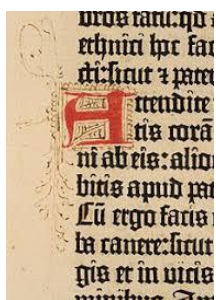 ethnici hoc fac
fcti:sicut ⁊ pater
Attendite
tis corā
ni ab eis:alioq
bitis apud pa
Cū ergo facis
ba canere:sicut
gis et in vicis